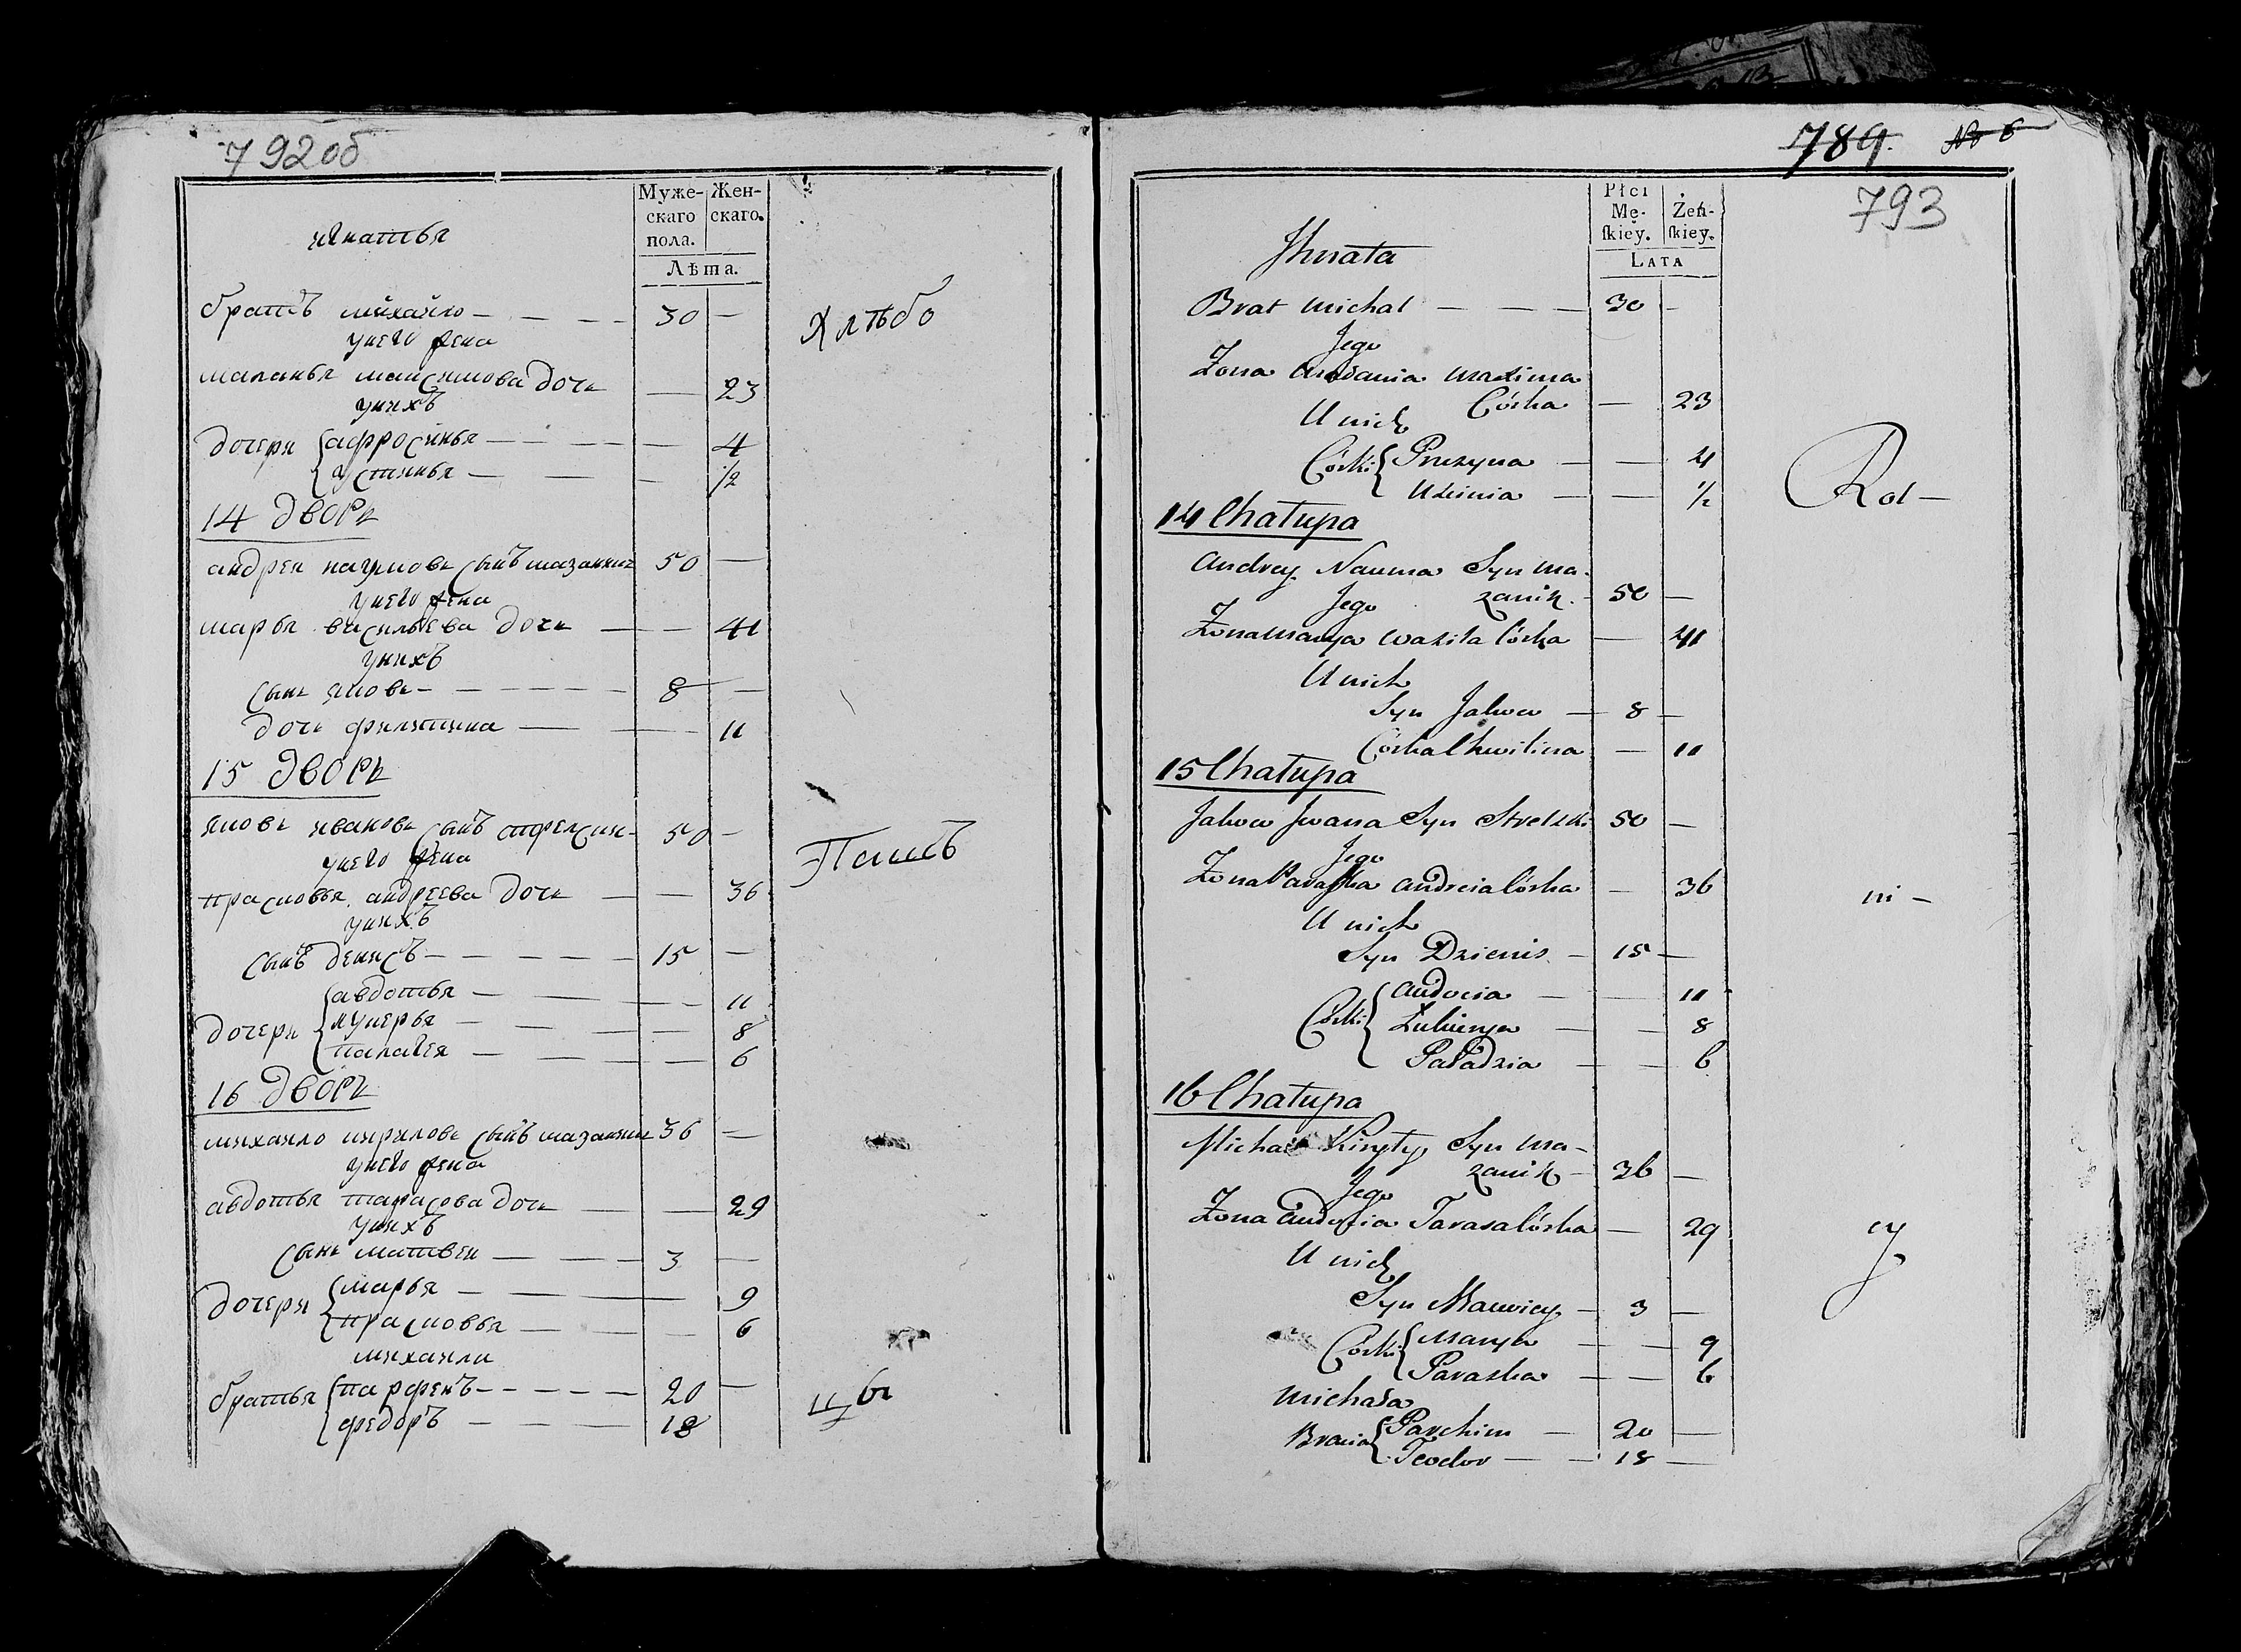 792об
Муже-
скаго
пола.
Жен-
скаго.
Лѣта.
игнатья
братъ михайло — — — 30 —
унего жена
маланья максимова дочь — 23
унихъ
дочери { афросинья — — — 4
устинья — — — 1/2
14 дворъ
андреи наумовъ сынъ мазаник 50 —
унего жена
марья васильева дочь — — 41
унихъ
сынъ яковъ — — — 8 —
дочь филитина — — — 11
15 дворъ
яковъ ивановъ сынъ 50 —
унего жена
прасковья андреева дочь — — 36
унихъ
сынъ денисъ — — — 15 —
дочери { авдотья — — — 11
лукерья — — — 8
палагея — — — 6
16 дворъ
михаило кириловъ сынъ мазаник 36 —
унего жена
авдотья тарасова дочь — — 29
унихъ
сынъ матвеи — — — 3 —
дочери { марья — — — 9
прасковья — — — 6
михаили
братья { парфенъ — — — 20 —
федоръ — — — 18
Хлѣбо
Пашъ
цы
789. № 6
793
Płci
Mę-
ſkiey.
Żeń-
ſkiey.
LATA
Jhnata
Brat Michał — — — 30 —
Jego
Żona Maxima
Córka — 23
U nich
Córki { Pruzyna — — 4
Uscinia — — 1/2
14 Chałupa
Andrey Nauma Syn Ma-
zanik — 50 —
Jego
Żona Marya Wasila Córka — 41
U nich
Syn Jakow — 8 —
Córka Chwilina — 11
15 Chałupa
Jakow Jwana Syn Strelski 50 —
Jego
Żona Paraska Andreia Córka — 36
U nich
Syn Dzienis — 15 —
Córki { Audocia — — 11
Łukierya — — 8
Paładzia — — 6
16 Chałupa
Michał Kiryły Syn Ma-
zanik — 36 —
Jego
Żona Audocia Tarasa Córka — 29
U nich
Syn Mawiey — 3 —
Córki { Marya — — 9
Paraska — — 6
Michała
Bracia { Parchim — 20 —
Teodor — — 18 —
Rol —
ni —
cy